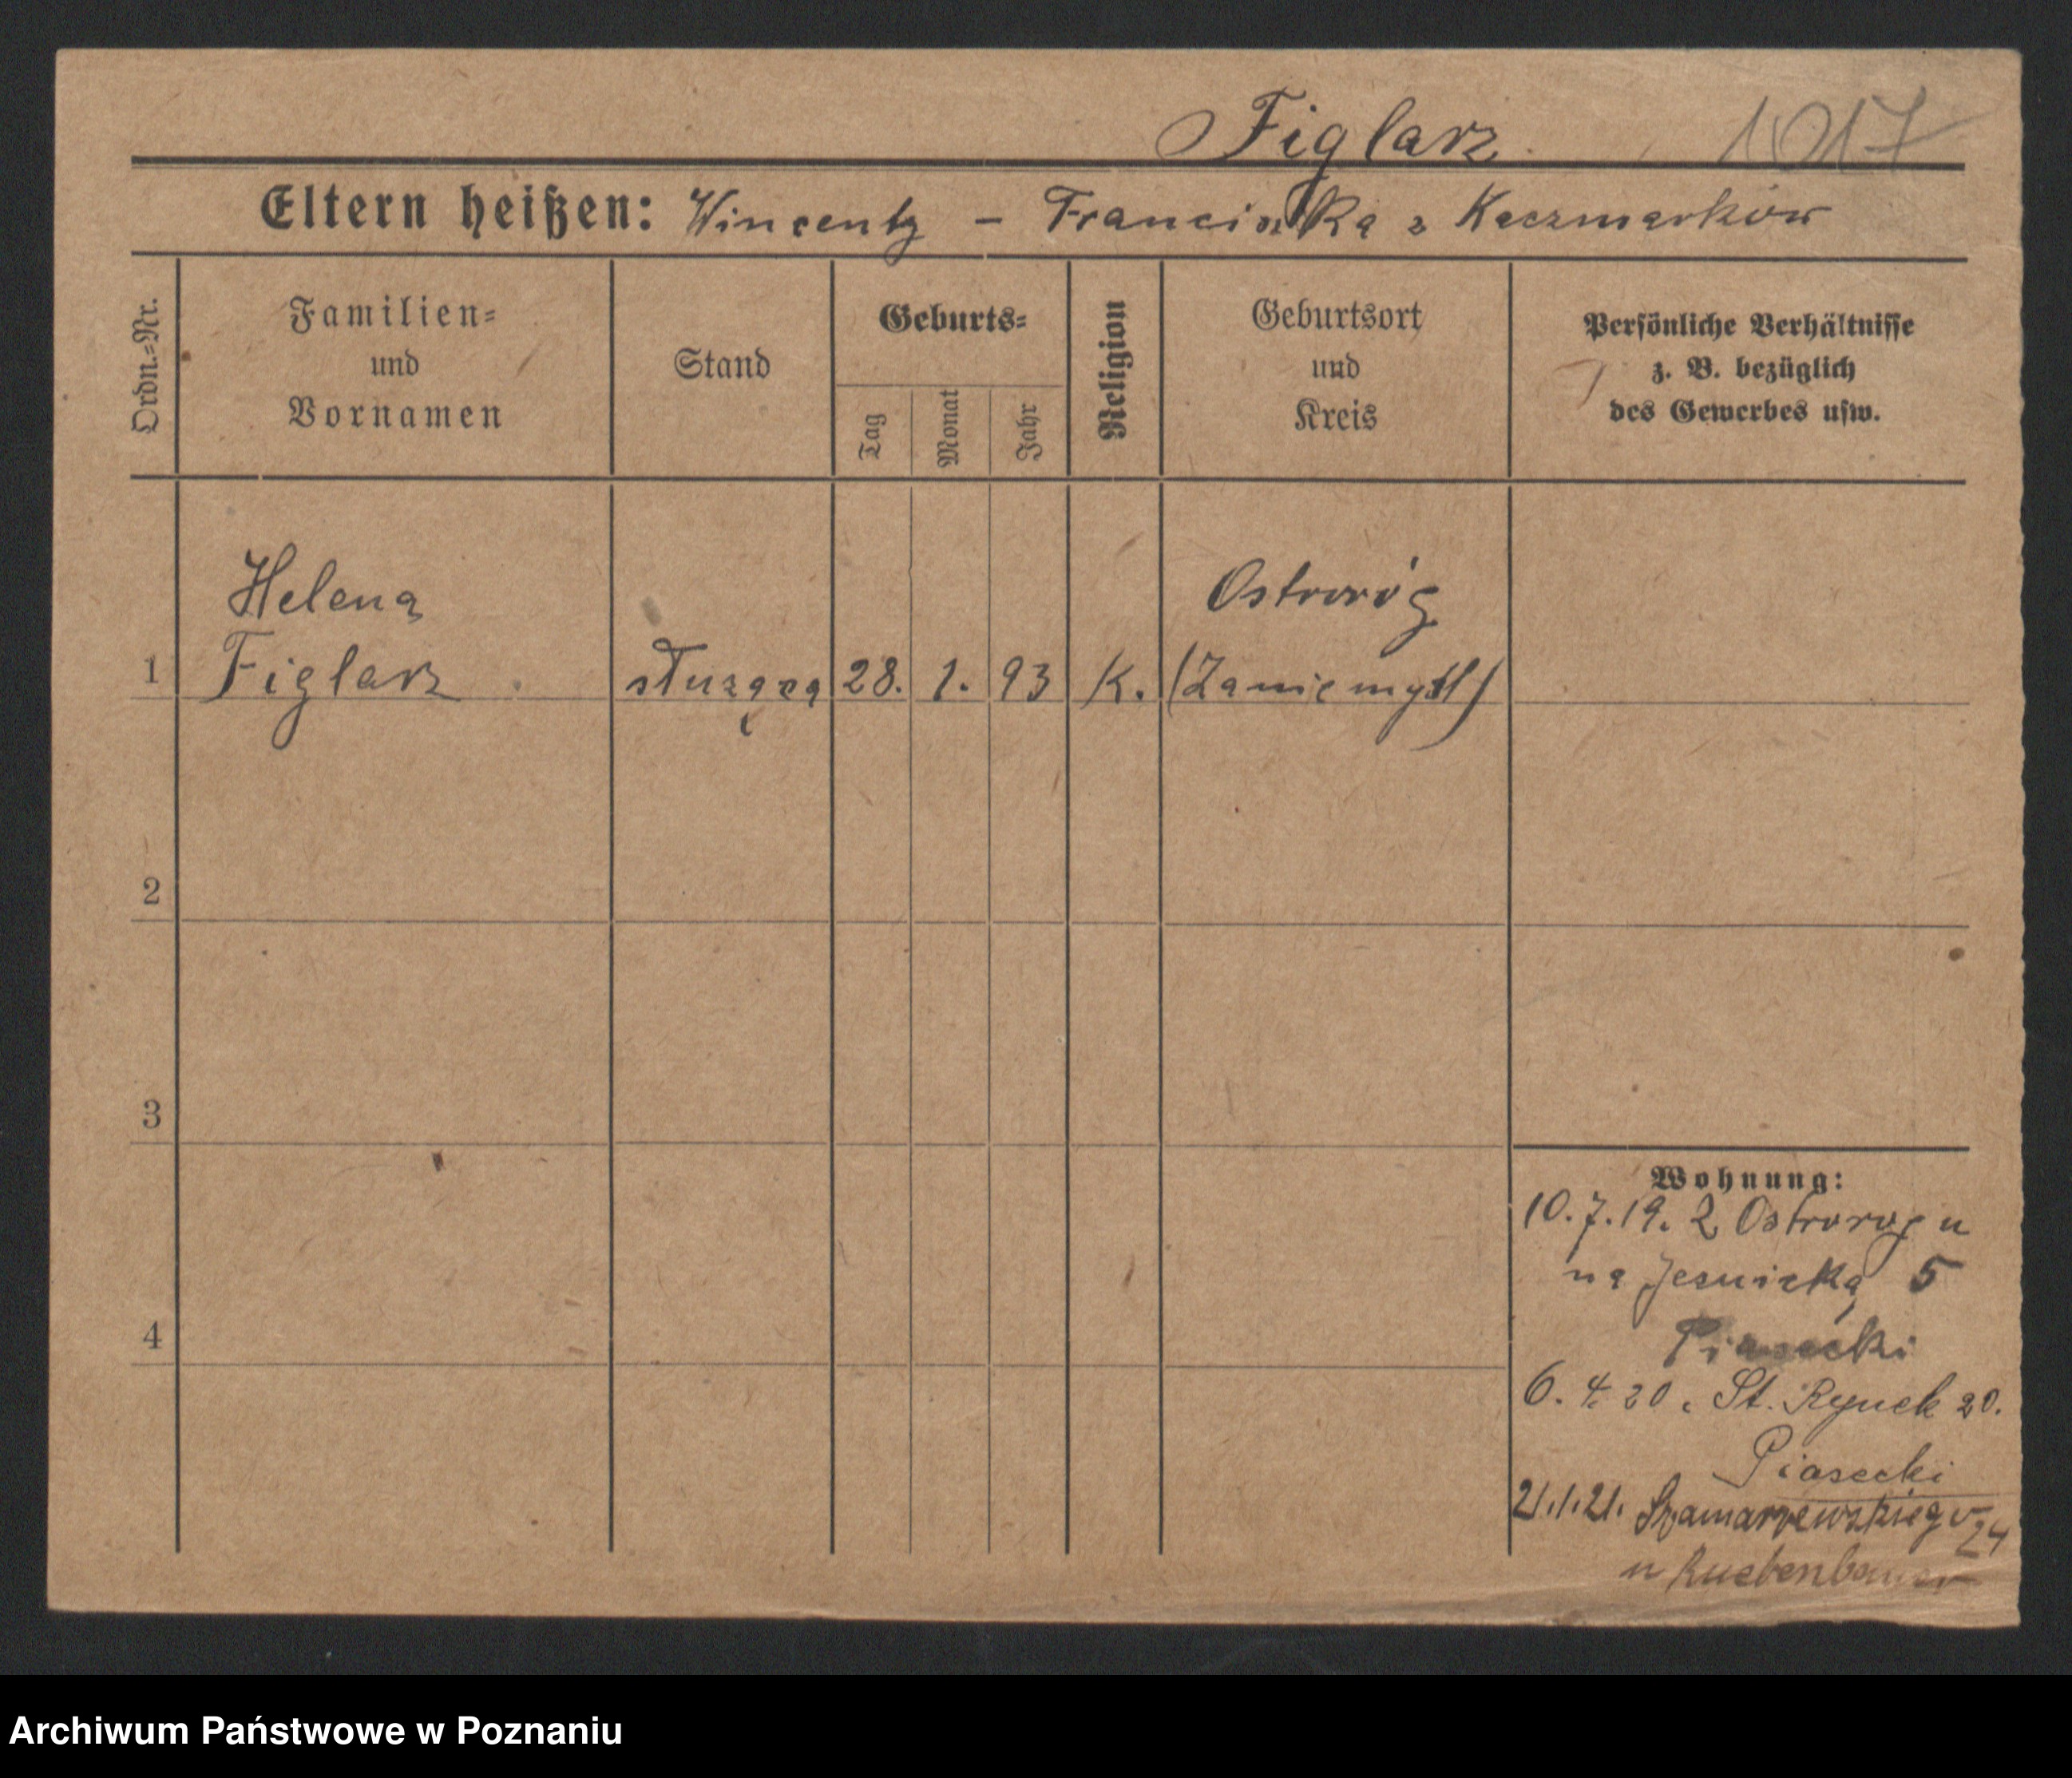 Figlarz. 1017
Eltern heißen: Wincenty – Franciszka z Kaczmarków
Ordn.=Nr.
Familien=
und
Vornamen
Stand
Geburts=
Tag
Monat
Jahr
Religion
Geburtsort
und
Kreis
Persönliche Verhältnisse
z. B. bezüglich
des Gewerbes usw.
Helena Ostroróg
1 Figlarz służącą 28. 1. 93 K. (Zaniemyśl)
2
3
4
Wohnung:
10.7.19. z Ostroroga
na Jesuicką 5
Piasecki
6. 4. 20. St. Rynek 20.
Piasecki
21.1.21. Szamarzewskiego 24
u Ruebenbauer
Archiwum Państwowe w Poznaniu